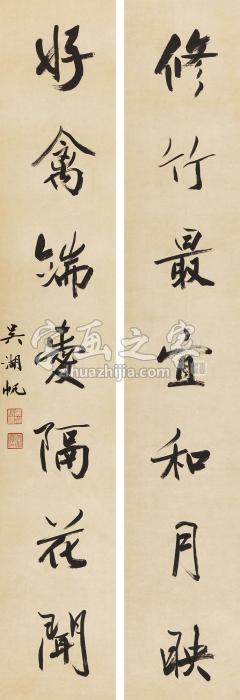 修竹最宜和月映
好禽端爱隔花聞
吳湖帆
字画之家
huazhijia.com